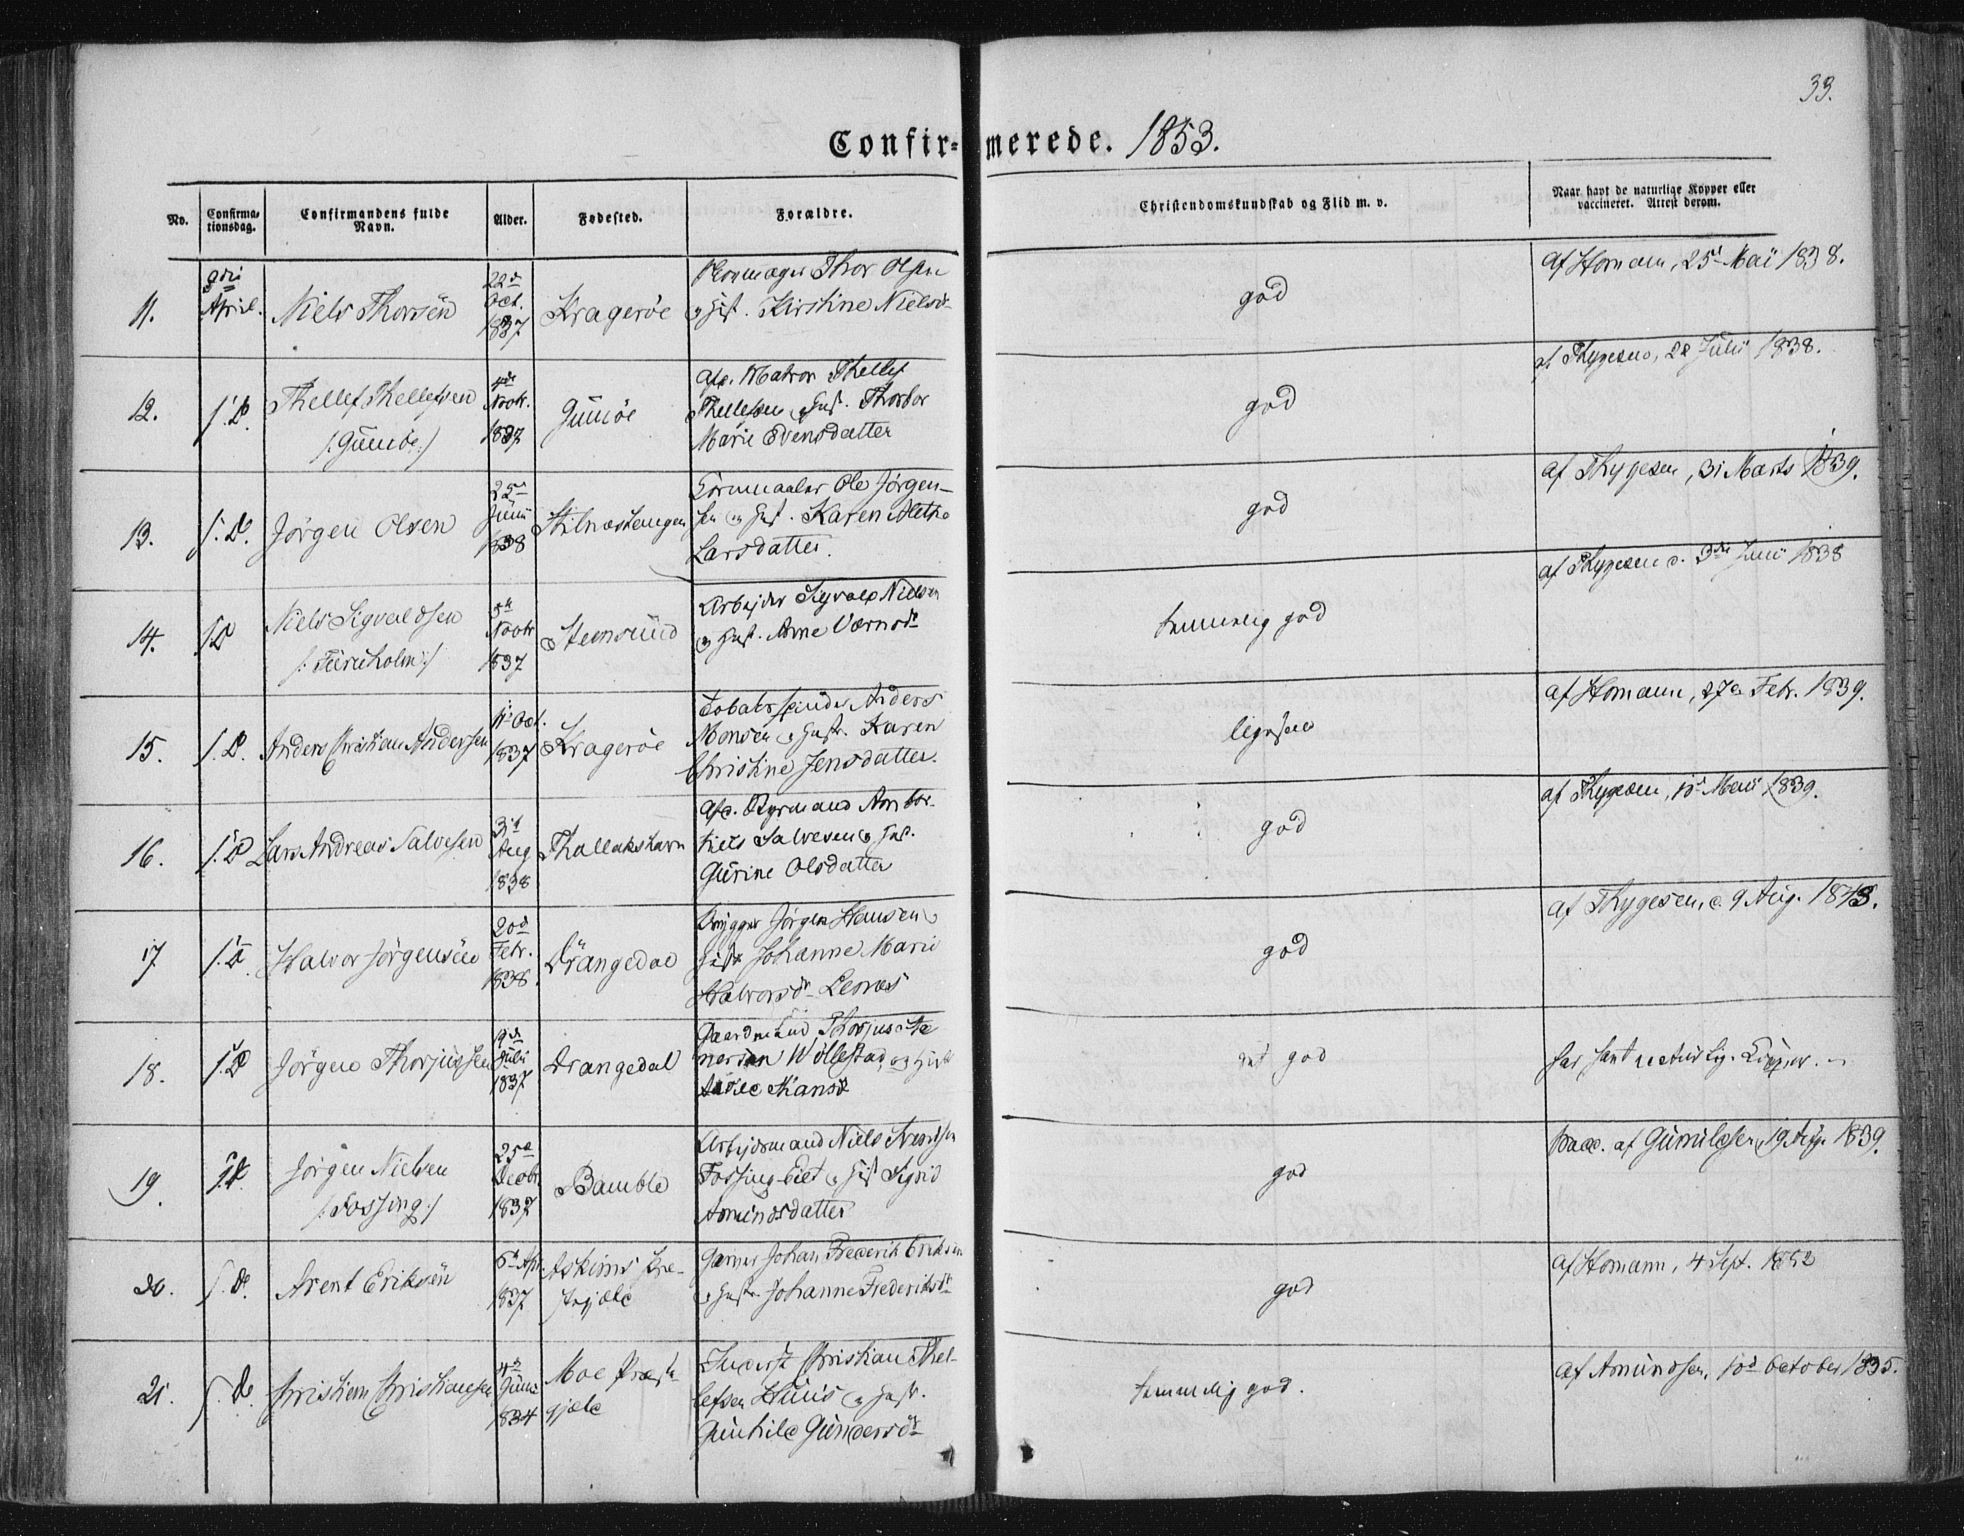 33.
Confirmerede. 1853.
No.
Confirma-
tionsdag.
Confirmandens fulde
Navn.
Alder.
Fødested.
Forældre.
Christendomskundskab og Flid m. v.
Naar havt de naturlige Kopper eller
vaccineret. Attest derom.
11.
9de
April.
Niels Thorsen
22d
Oct.
1837
Kragerøe
Thor Olsen
Kirstine Nielsd
god
af Homann, 25d Mai 1838.
12.
Thellef Thellefsen
(: Gumøe :)
4de
Novbr.
1837
Gumøe
afd. Matros Thellef
Thellefsen og Hust. Thorbor
Marie Svensdatter
god
af Thygesen, 28 Juli 1838.
13.
Jörgen Olsen
25d
Juni
1838
Ole Jörgen-
sen og Hust. Karen Alethe
Larsdatter.
god
af Thygesen, 31 Marts 1839.
14.
Niels Sigvaldsen
(: Furuholm :)
Novbr
1837
Stensund
Arbejder Sigvald Nielsen
og Hust. Anne
temmelig god
af Thygesen d. 3de Juni 1838
15.
Anders Christian Andersen
11 Oct.
1837
Kragerøe
Tobaksspinder Anders
Monsen og Hustr. Karen
Christine Jensdatter.
ligesaa
af Homann, 27d Febr. 1839.
16.
Lars Andreas Salvesen
31
Aug
1838
Thallakshavn
afd. Styrmand
Salvesen og Hus.
Gurine Olsdatter
god
af Thygesen, 10d Mai 1839.
17
Halvor Jörgensen
20d
Febr.
1838.
Drangedal
Brygger Jörgen Hansen og
Hustr Johanne Marie
Halvorsdr
god
af Thygesen, d. 9 Aug. 1843.
18.
Jörgen Thorjussen
9d
Juli
1837
Drangedal
Gaardmand Thorjus
Wöllestad, og Hustr
Hansd
god
har havt naturlig. Kopper.
19.
Jörgen Nielsen
(: Fossing :)
25d
Decbr.
1837
Bamble
Arbejdsmand Niels
Fossing Eiet og Hust Sigrid
Amundsdatter
god
vacc. af Gunnildsen, 19 Aug. 1839.
20.
Arent Eriksen
6d Apr.
1837
Askims Præ-
stegjeld
Garver Johan Frederik Eriksen
og Hustr. Johanne Frederiksd
god
af Homann, 4 Sept. 1852
21.
Christian Christiansen
4d
Juni
1834
Moe Præste-
gjeld
Inderst Christian Thel-
lefsen Huus og Hustr.
Gunhild Gundersd
temmelig god.
af Amundsen, 10d October 1835.